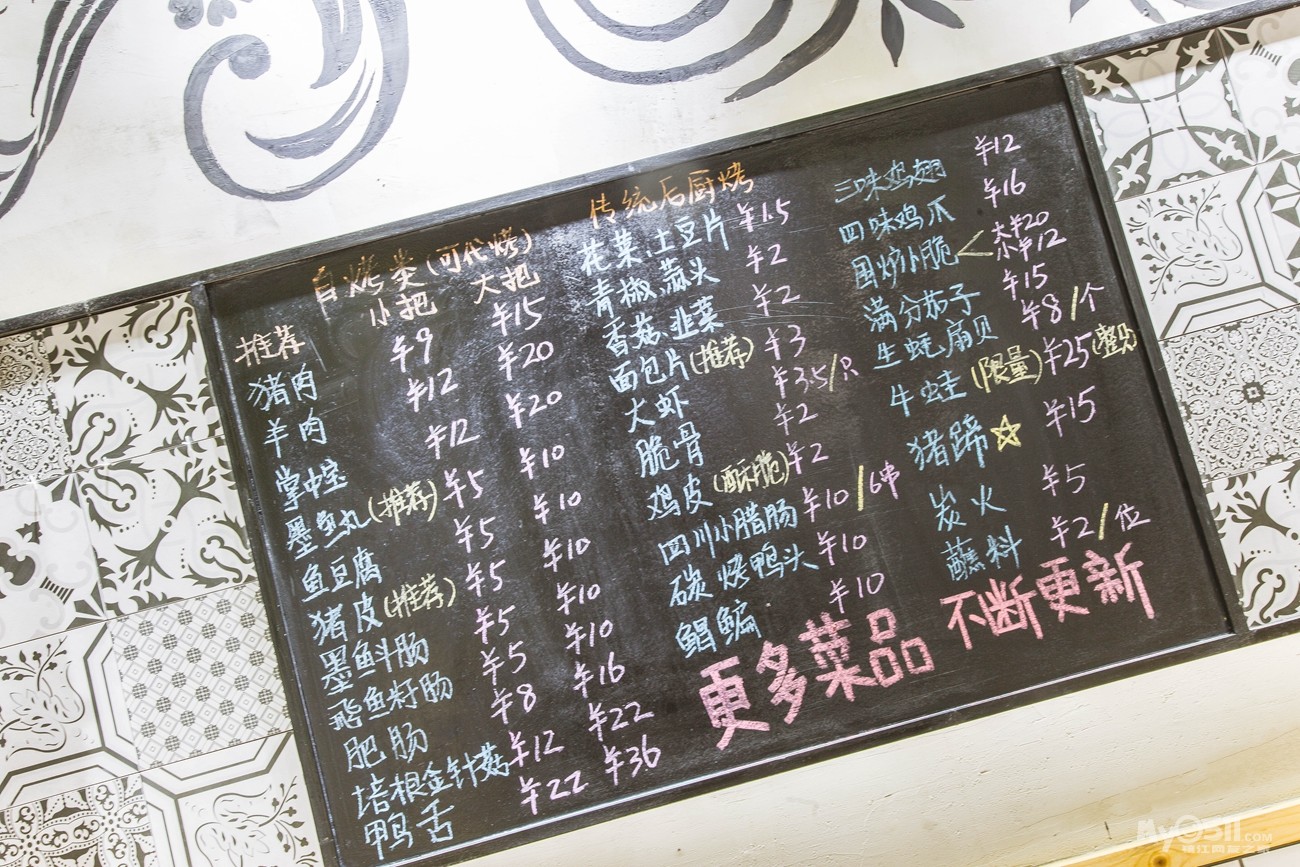 自烤类(可代烤)
小把 大把
推荐
猪肉 ¥9 ¥15
羊肉 ¥12 ¥20
掌中宝 ¥12 ¥20
墨鱼丸(推荐) ¥5 ¥10
鱼豆腐 ¥5 ¥10
猪皮(推荐) ¥5 ¥10
墨鱼斗肠 ¥5 ¥10
鱼籽肠 ¥5 ¥10
肥肠 ¥8 ¥16
培根金针菇 ¥12 ¥22
鸭舌 ¥22 ¥36
传统后厨烤
花菜土豆片 ¥1.5
青椒蒜头 ¥2
香菇韭菜 ¥2
面包片(推荐) ¥3
大虾 ¥3.5/只
脆骨 ¥2
鸡皮(酥脆) ¥2
四川小腊肠 ¥10/6串
碳烤鸭头 ¥10
鲳鳊 ¥10
三味鸡翅 ¥12
四味鸡爪 ¥16
围炉卟脆 大¥20 小¥12
满分茄子 ¥15
生蚝扇贝 ¥8/个
牛蛙(限量) ¥25
猪蹄☆ ¥15
炭火 ¥5
蘸料 ¥2/位
更多菜品 不断更新
My0511.COM